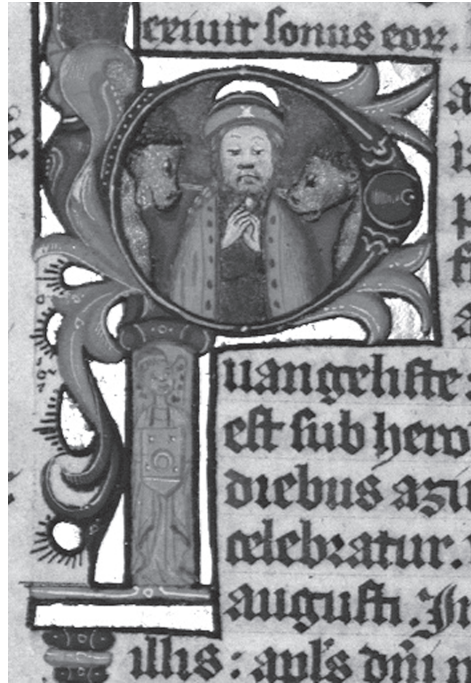 exiuit sonus eoꝝ.
P
uangeliste
est sub hero
diebus
celebratur.
augusti. In
illis: apl̄s dn̄i